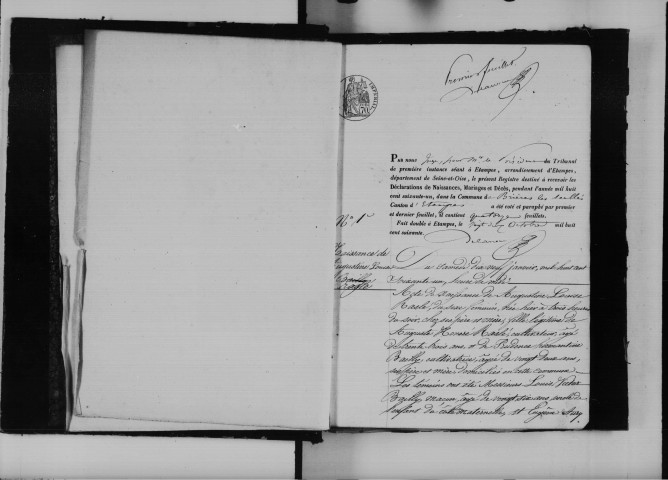 Premier feuillet
PAR nous Juge, pour Mr le Président du Tribunal
de première instance séant à Etampes, arrondissement d'Etampes,
département de Seine-et-Oise, le présent Registre destiné à recevoir les
Déclarations de Naissances, Mariages et Décès, pendant l'année mil huit
cent soixante-un, dans la Commune de Brières les scellés
Canton d'Etampes a été coté et paraphé par premier
et dernier feuillet, il contient quatorze feuillets.
Fait double à Etampes, le vingt deux Octobre mil huit
cent soixante.
No. 1er
Naissance de
Augustine Louise
Du samedi dix neuf janvier, mil huit cent
soixante un, heure de
Acte de naissance de Augustine Louise
du sexe féminin, née hier à trois heures
du soir, chez ses père et mère, fille légitime de
Auguste Honoré cultivateur, âgé
de trente trois ans, et de Prudence
Bailly, cultivatrice, âgée de vingt deux ans,
ses père et mère domiciliés en cette commune.
Les témoins ont été Messieurs Louis Victor
Bailly, maçon, âgé de vingt six ans, oncle de
l'enfant du côté maternelle, et Eugène